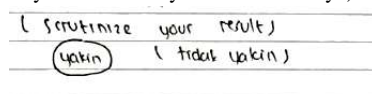 ( scrutinize your result )
yakin ( tidak yakin )